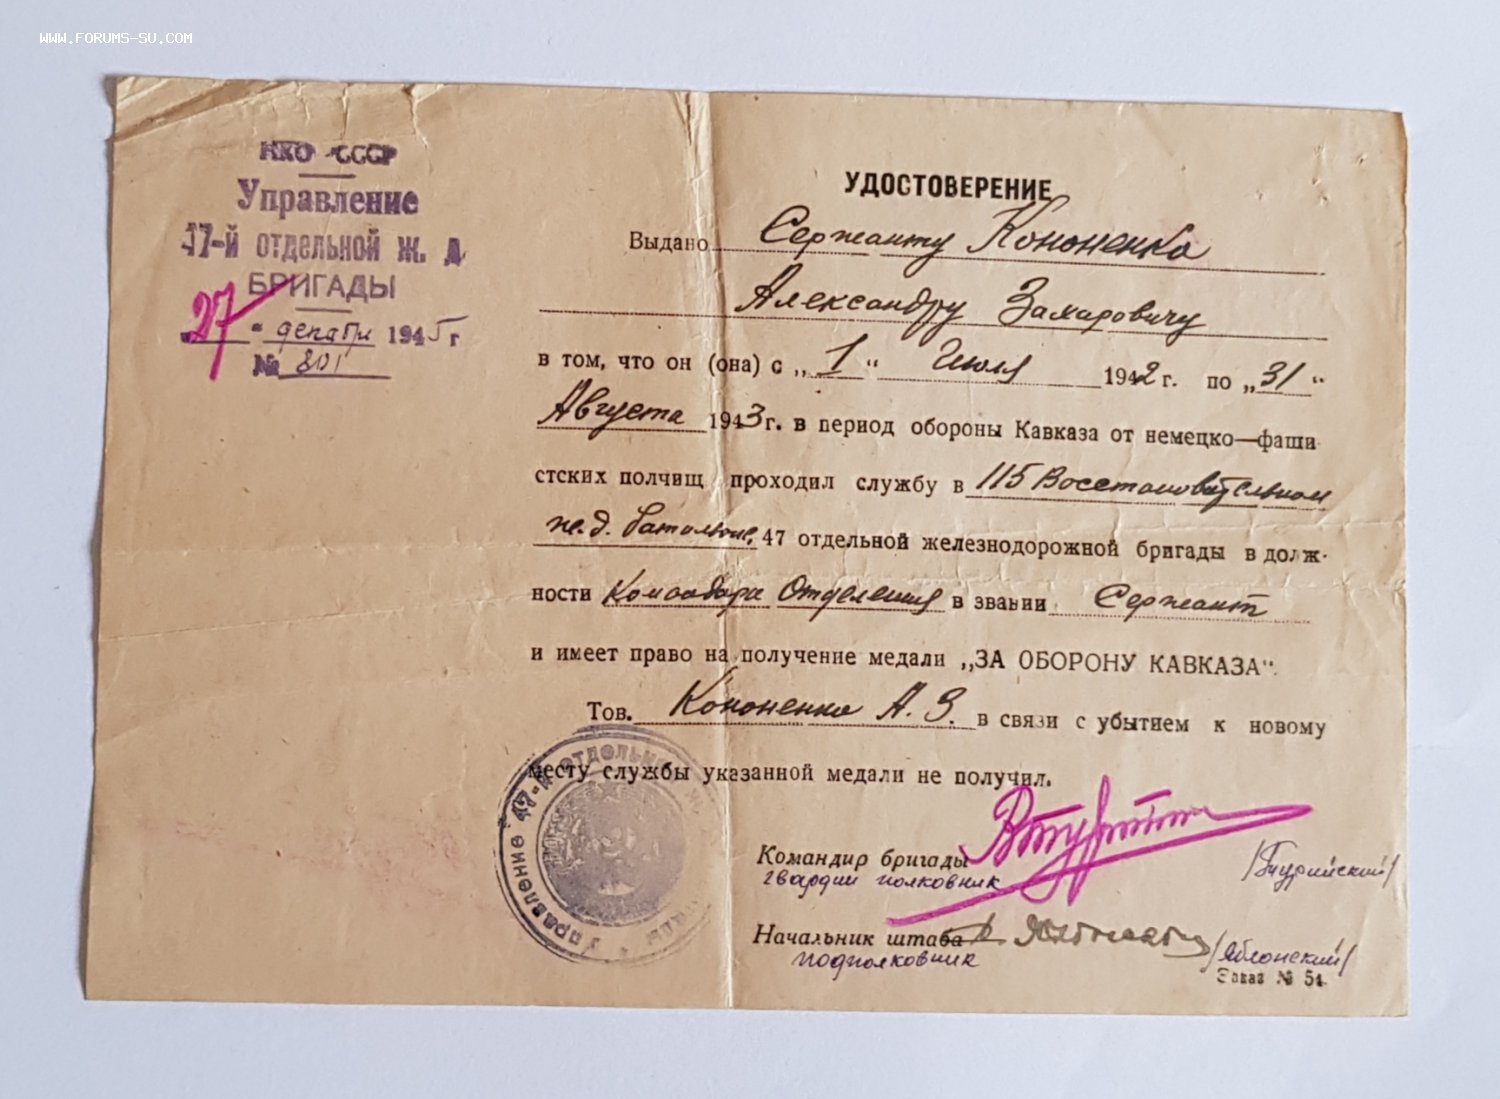 WWW.FORUMS-SU.COM
НКО СССР
Управление
47-й ОТДЕЛЬНОЙ Ж. Д
БРИГАДЫ
27 " декабря 1945 г
№ 801
УДОСТОВЕРЕНИЕ
Выдано Сержанту Кононенко
Александру Захаровичу
в том, что он (она) с „ 1 “ Июля 1942 г. по „31 “
Августа 1943 г. в период обороны Кавказа от немецко—фаши
стских полчищ проходил службу в 115 Восстановительном
ж.д. батальоне, 47 отдельной железнодорожной бригады в долж-
ности Командира Отделения в звании Сержант
и имеет право на получение медали „ЗА ОБОРОНУ КАВКАЗА“.
Тов. Кононенко А. З. в связи с убытием к новому
месту службы указанной медали не получил.
Управление 47-й отдельной
Командир бригады
гвардии полковник
Начальник штаба
подполковник /Яблонский/
Заказ № 54